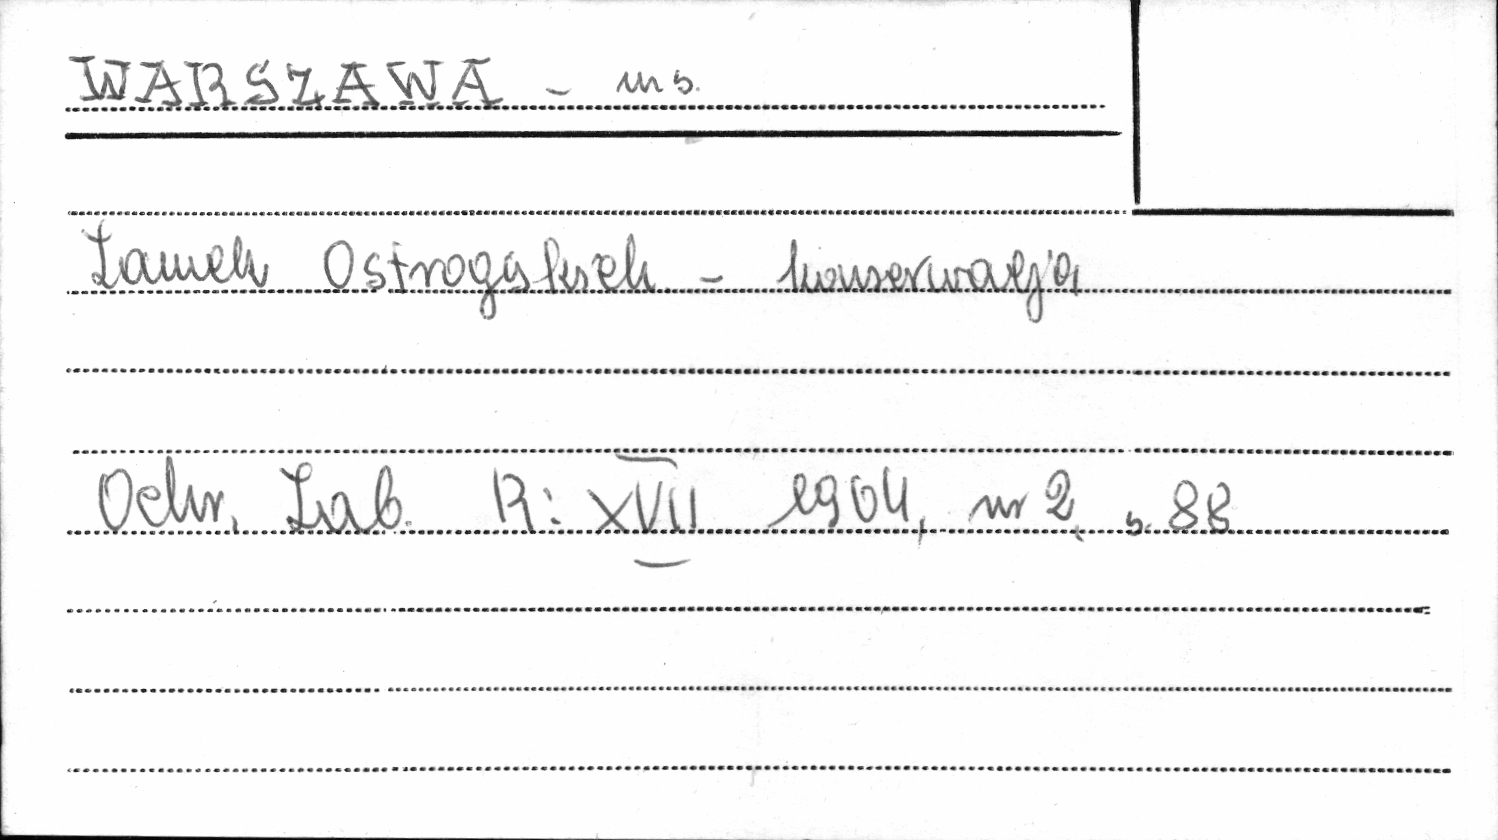 WARSZAWA - ms.
Zamek Ostrogskich - konserwacja
Ochr. Zab. R: XVII 1964, nr 2, s. 88